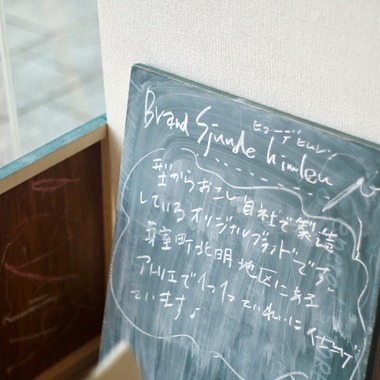 ヒューデ ヒムレン
Brand Sjunde himlen
型からおこし自社で製造
しているオリジナルブランドです。
芽室町北明地区にある
アトリエで1つ1つていねいに仕上げ
ています♪